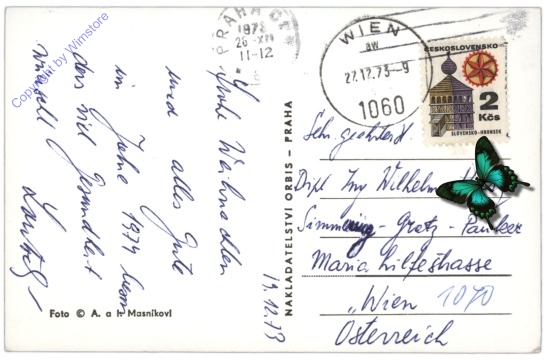 PRAHA
1973
26.XII
11-12
WIEN
aw
27.12.73-9
1060
ČESKOSLOVENSKO
2
Kčs
SLOVENSKO-HRONSEK
Copyright by Winstore
Frohe Weihnachten
und alles Gute
im Jahre 1974
das viel Gesundheit
wünscht
19.12.73
NAKLADATELSTVÍ ORBIS – PRAHA
Foto © A. a I. Masníkovi
Sehr geehrter H.
Dipl Ing Wilhelm
Simmering-Gratz-Pauker
Maria hilfestrasse
"Wien 1070
Österreich